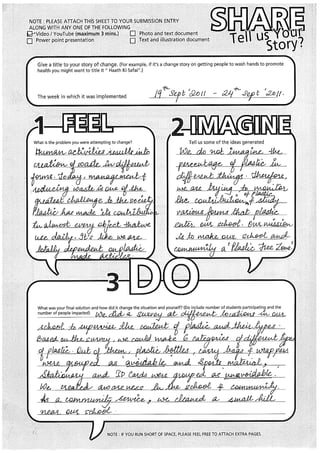 NOTE : PLEASE ATTACH THIS SHEET TO YOUR SUBMISSION ENTRY
ALONG WITH ANY ONE OF THE FOLLOWING
Video / YouTube (maximum 3 mins.)
Photo and text document
Power point presentation
Text and illustration document
SHARE
Tell us Your
Story?
Give a title to your story of change. (For example, if it's a change story on getting people to wash hands to promote
health you might want to title it " Haath Ki Safai".)
The week in which it was implemented
19th Sept' 2011 - 24th Sept' 2011.
1 FEEL
What is the problem you were attempting to change?
Human activities results into
creation of waste in different
forms. Today, management of
reducing waste is one of the
greatest challenge to the society
Plastic has made its contribution
in almost every object that we
use daily. It's like we are
totally dependent on plastic
made articles.
2 IMAGINE
Tell us some of the ideas generated
We do not imagine the
percentage of plastic in
different things. Therefore,
we are trying to monitor
the contribution of plastic & study
various forms that plastic
enter our school. Our mission
is to make our school and
community a 'Plastic Free Zone'
3 DO
What was your final solution and how did it change the situation and yourself? (Do include number of students participating and the
number of people impacted)
We did a survey at different locations in our
school to supervise the content of plastic and their types.
Based on the survey, we could make 6 categories of different types
of plastic. Out of them, plastic bottles, carry bags & wrappers
were grouped as avoidable and Sports material,
Stationary and ID Cards were grouped as unavoidable.
We created awareness in the school & community.
As a community service, we cleaned a small hill
near our school.
NOTE : IF YOU RUN SHORT OF SPACE, PLEASE FEEL FREE TO ATTACH EXTRA PAGES.